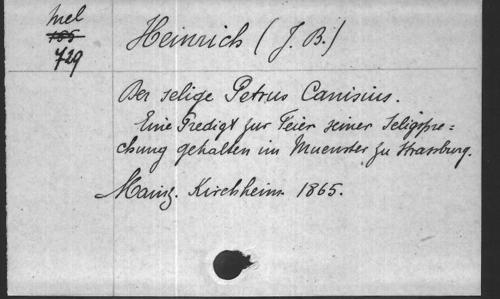 Mel
185
729
Heinrich (J. B.)
Der selige Petrus Canisius.
Eine Predigt zur Feier seiner Seligspre=
chung gehalten im Muenster zu Strassburg.
Mainz. Kirchheim 1865.